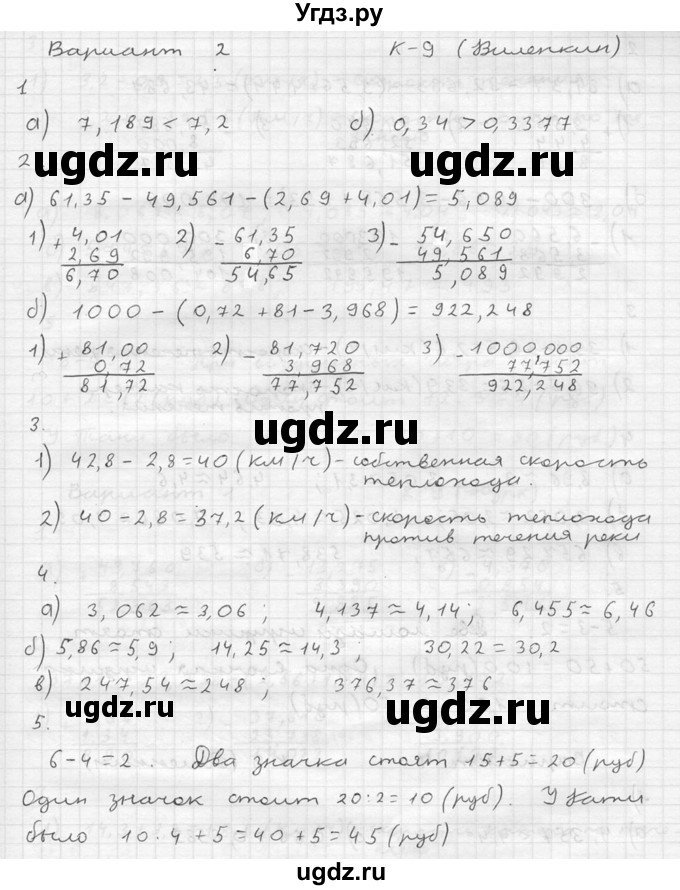 Угдз.ру
Вариант 2 К-9 (Виленкин)
1
а) 7,189 < 7,2 б) 0,34 > 0,3377
ugdz.ru ugdz.ru
2
а) 61,35 - 49,561 - (2,69 + 4,01) = 5,089
1) + 4,01 2) - 61,35 3) - 54,650
2,69 6,70 49,561
6,70 54,65 5,089
б) 1000 - (0,72 + 81 - 3,968) = 922,248
1) + 81,00 2) - 81,720 3) - 1000,000
0,72 3,968 77,752
81,72 77,752 922,248
ugdz.ru
3.
1) 42,8 - 2,8 = 40 (км/ч) - собственная скорость
теплохода.
2) 40 - 2,8 = 37,2 (км/ч) - скорость теплохода
против течения реки
4.
а) 3,062 ≈ 3,06 ; 4,137 ≈ 4,14 ; 6,455 ≈ 6,46
б) 5,86 ≈ 5,9 ; 14,25 ≈ 14,3 ; 30,22 = 30,2
в) 247,54 ≈ 248 ; 376,37 ≈ 376
ugdz.ru ugdz.ru
5.
6 - 4 = 2. Два значка стоят 15 + 5 = 20 (руб)
Один значок стоит 20 : 2 = 10 (руб). У Кати
было 10 · 4 + 5 = 40 + 5 = 45 (руб)
ugdz.ru